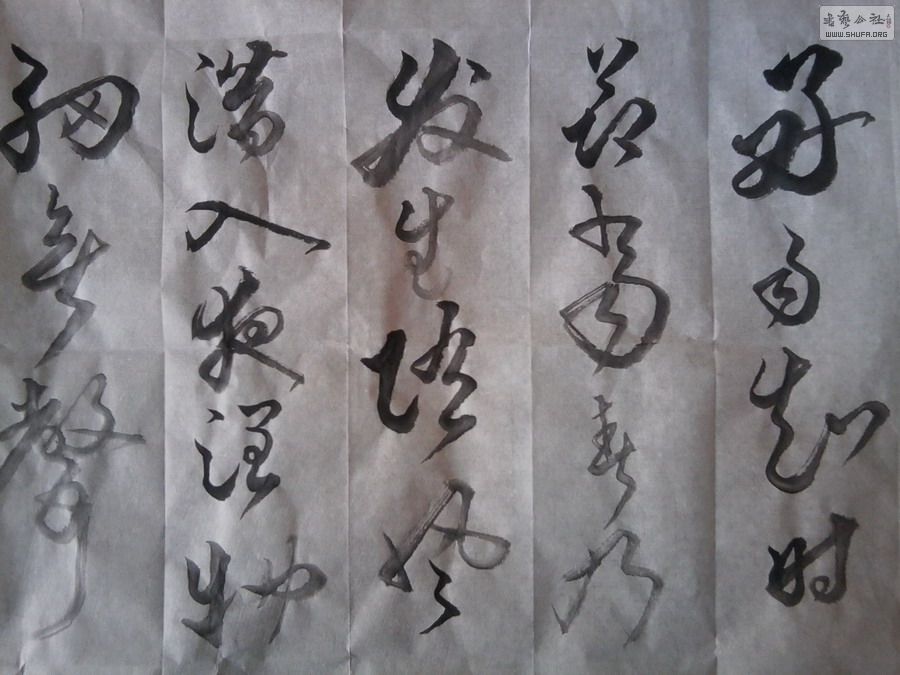 好雨知时
节當春乃
发生随風
潜入夜润物
细無聲
書藝公社
WWW.SHUFA.ORG